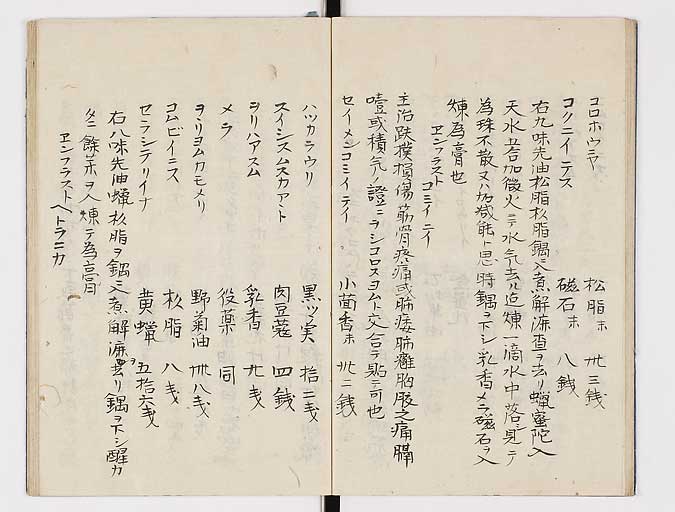 コロホウニヤ 松脂ホ 卅三銭
コクニイテス 磁石ホ 八銭
右九味先油松脂杉脂鍋ニ入煮解漉査ヲ去リ蝋蜜陀入
天水少若加微火ニテ水気去ル迄煉一滴水中落シ見テ
為珠不散又ハ減能ト思時鍋ヲ下シ乳香メラ磁石ヲ入
煉為膏也
ヱンフラスト コミイニイ
主治跌撲損傷筋骨疼痛或肺痿肺癰胸腹之痛膈
噎或積気ノ證ニラシコロスヨムト交合テ貼テ可也
セイメンコミイテイ 小茴香ホ 卅二銭
ハツカラウリ 黒ツ実 拾二戔
スイシスムスカアト 肉豆蔲 四銭
ヲリハアスム 乳香 九戔
メラ 役薬 同
ヲリヨムカモメリ 野菊油 卅八戔
コムビイニス 杉脂 八戔
セラシテリイナ 黄蝋 五拾六戔
右八味先油蝋杉脂ヲ鍋ニ入煮解漉ヲ去リ鍋ヲ下シ醒カ
タニ餘薬ヲ入煉テ為膏
ヱンフラスト ヘトラニカ